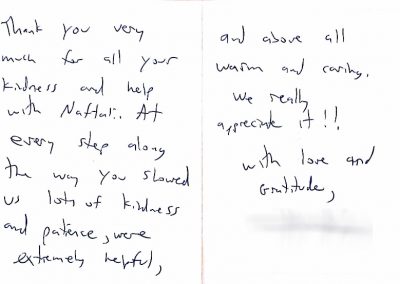 Thank you very
much for all your
kindness and help
with Naftali. At
every step along
the way you showed
us lots of kindness
and patience, were
extremely helpful,
and above all
warm and caring.
We really
appreciate it!!
with love and
Gratitude,